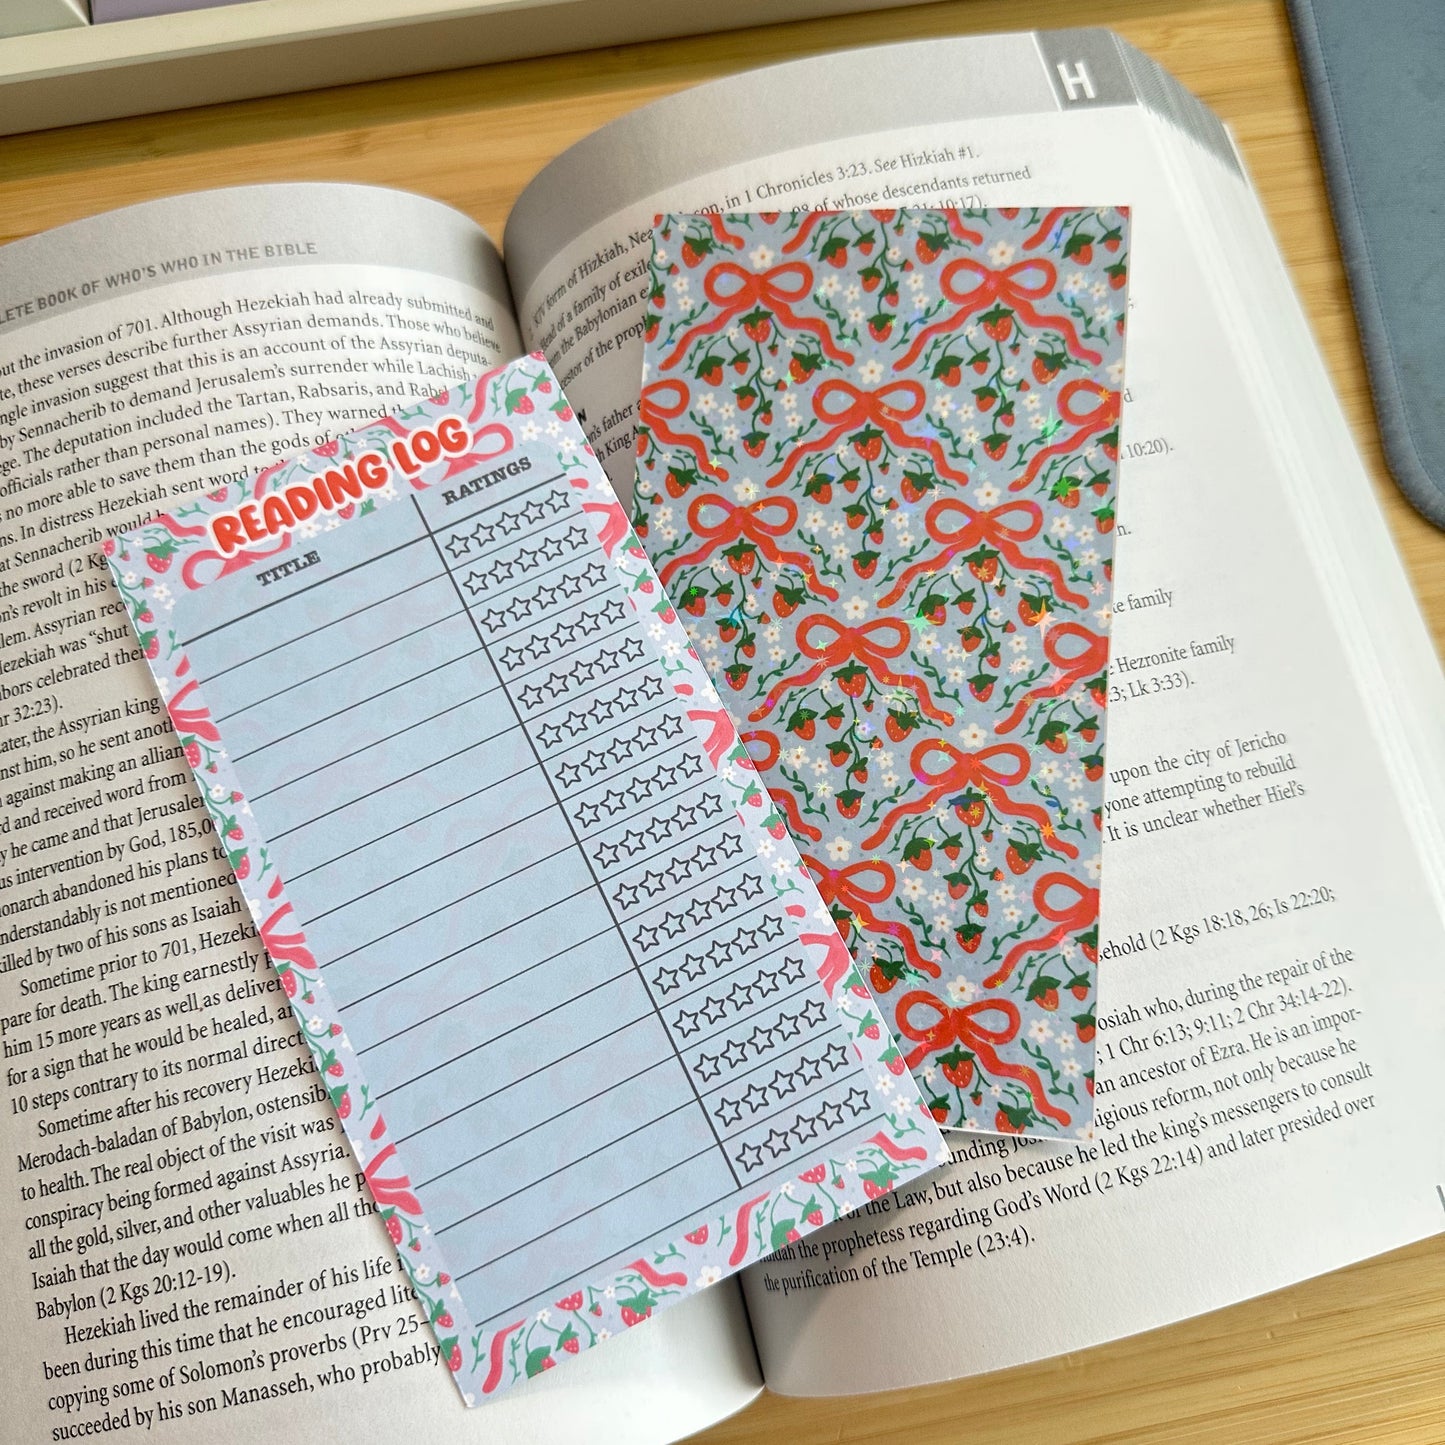 LETE BOOK OF WHO'S WHO IN THE BIBLE
out the invasion of 701. Although Hezekiah had already submitted and
te, these verses describe further Assyrian demands. Those who believe
ngle invasion suggest that this is an account of the Assyrian deputa-
by Sennacherib to demand Jerusalem's surrender while Lachish
ege. The deputation included the Tartan, Rabsaris, and Rabs
officials rather than personal names). They warned th
no more able to save them than the gods of oth
ns. In distress Hezekiah sent word to
at Sennacherib would
the sword (2 Kg
on's revolt in his
alem. Assyrian rec
Hezekiah was "shut
bors celebrated thei
hr 32:23).
ater, the Assyrian king
nst him, so he sent anoth
against making an allian
rd and received word from
y he came and that Jerusalem
us intervention by God, 185,00
onarch abandoned his plans to
nderstandably is not mentioned
killed by two of his sons as Isaiah
Sometime prior to 701, Hezeki
pare for death. The king earnestly
him 15 more years as well as deliver
for a sign that he would be healed, an
10 steps contrary to its normal direct
Sometime after his recovery Hezeki
Merodach-baladan of Babylon, ostensib
to health. The real object of the visit was
conspiracy being formed against Assyria.
all the gold, silver, and other valuables he p
Isaiah that the day would come when all the
Babylon (2 Kgs 20:12-19).
Hezekiah lived the remainder of his life
been during this time that he encouraged lite
copying some of Solomon's proverbs (Prv 25–
succeeded by his son Manasseh, who probably
READING LOG
TITLE
RATINGS
H
son, in 1 Chronicles 3:23. See Hizkiah #1.
98 of whose descendants returned
10:17).
KJV form of Hizkiah, Nea
Head of a family of exile
om the Babylonian e
estor of the proph
N
n's father a
h King A
10:20).
n.
te family
Hezronite family
3; Lk 3:33).
upon the city of Jericho
yone attempting to rebuild
It is unclear whether Hiel's
ehold (2 Kgs 18:18, 26; Is 22:20;
osiah who, during the repair of the
; 1 Chr 6:13; 9:11; 2 Chr 34:14-22).
an ancestor of Ezra. He is an impor-
igious reform, not only because he
unding Josi because he led the king's messengers to consult
of the Law, but also because he led the king's messengers to consult
uldah the prophetess regarding God's Word (2 Kgs 22:14) and later presided over
the purification of the Temple (23:4).